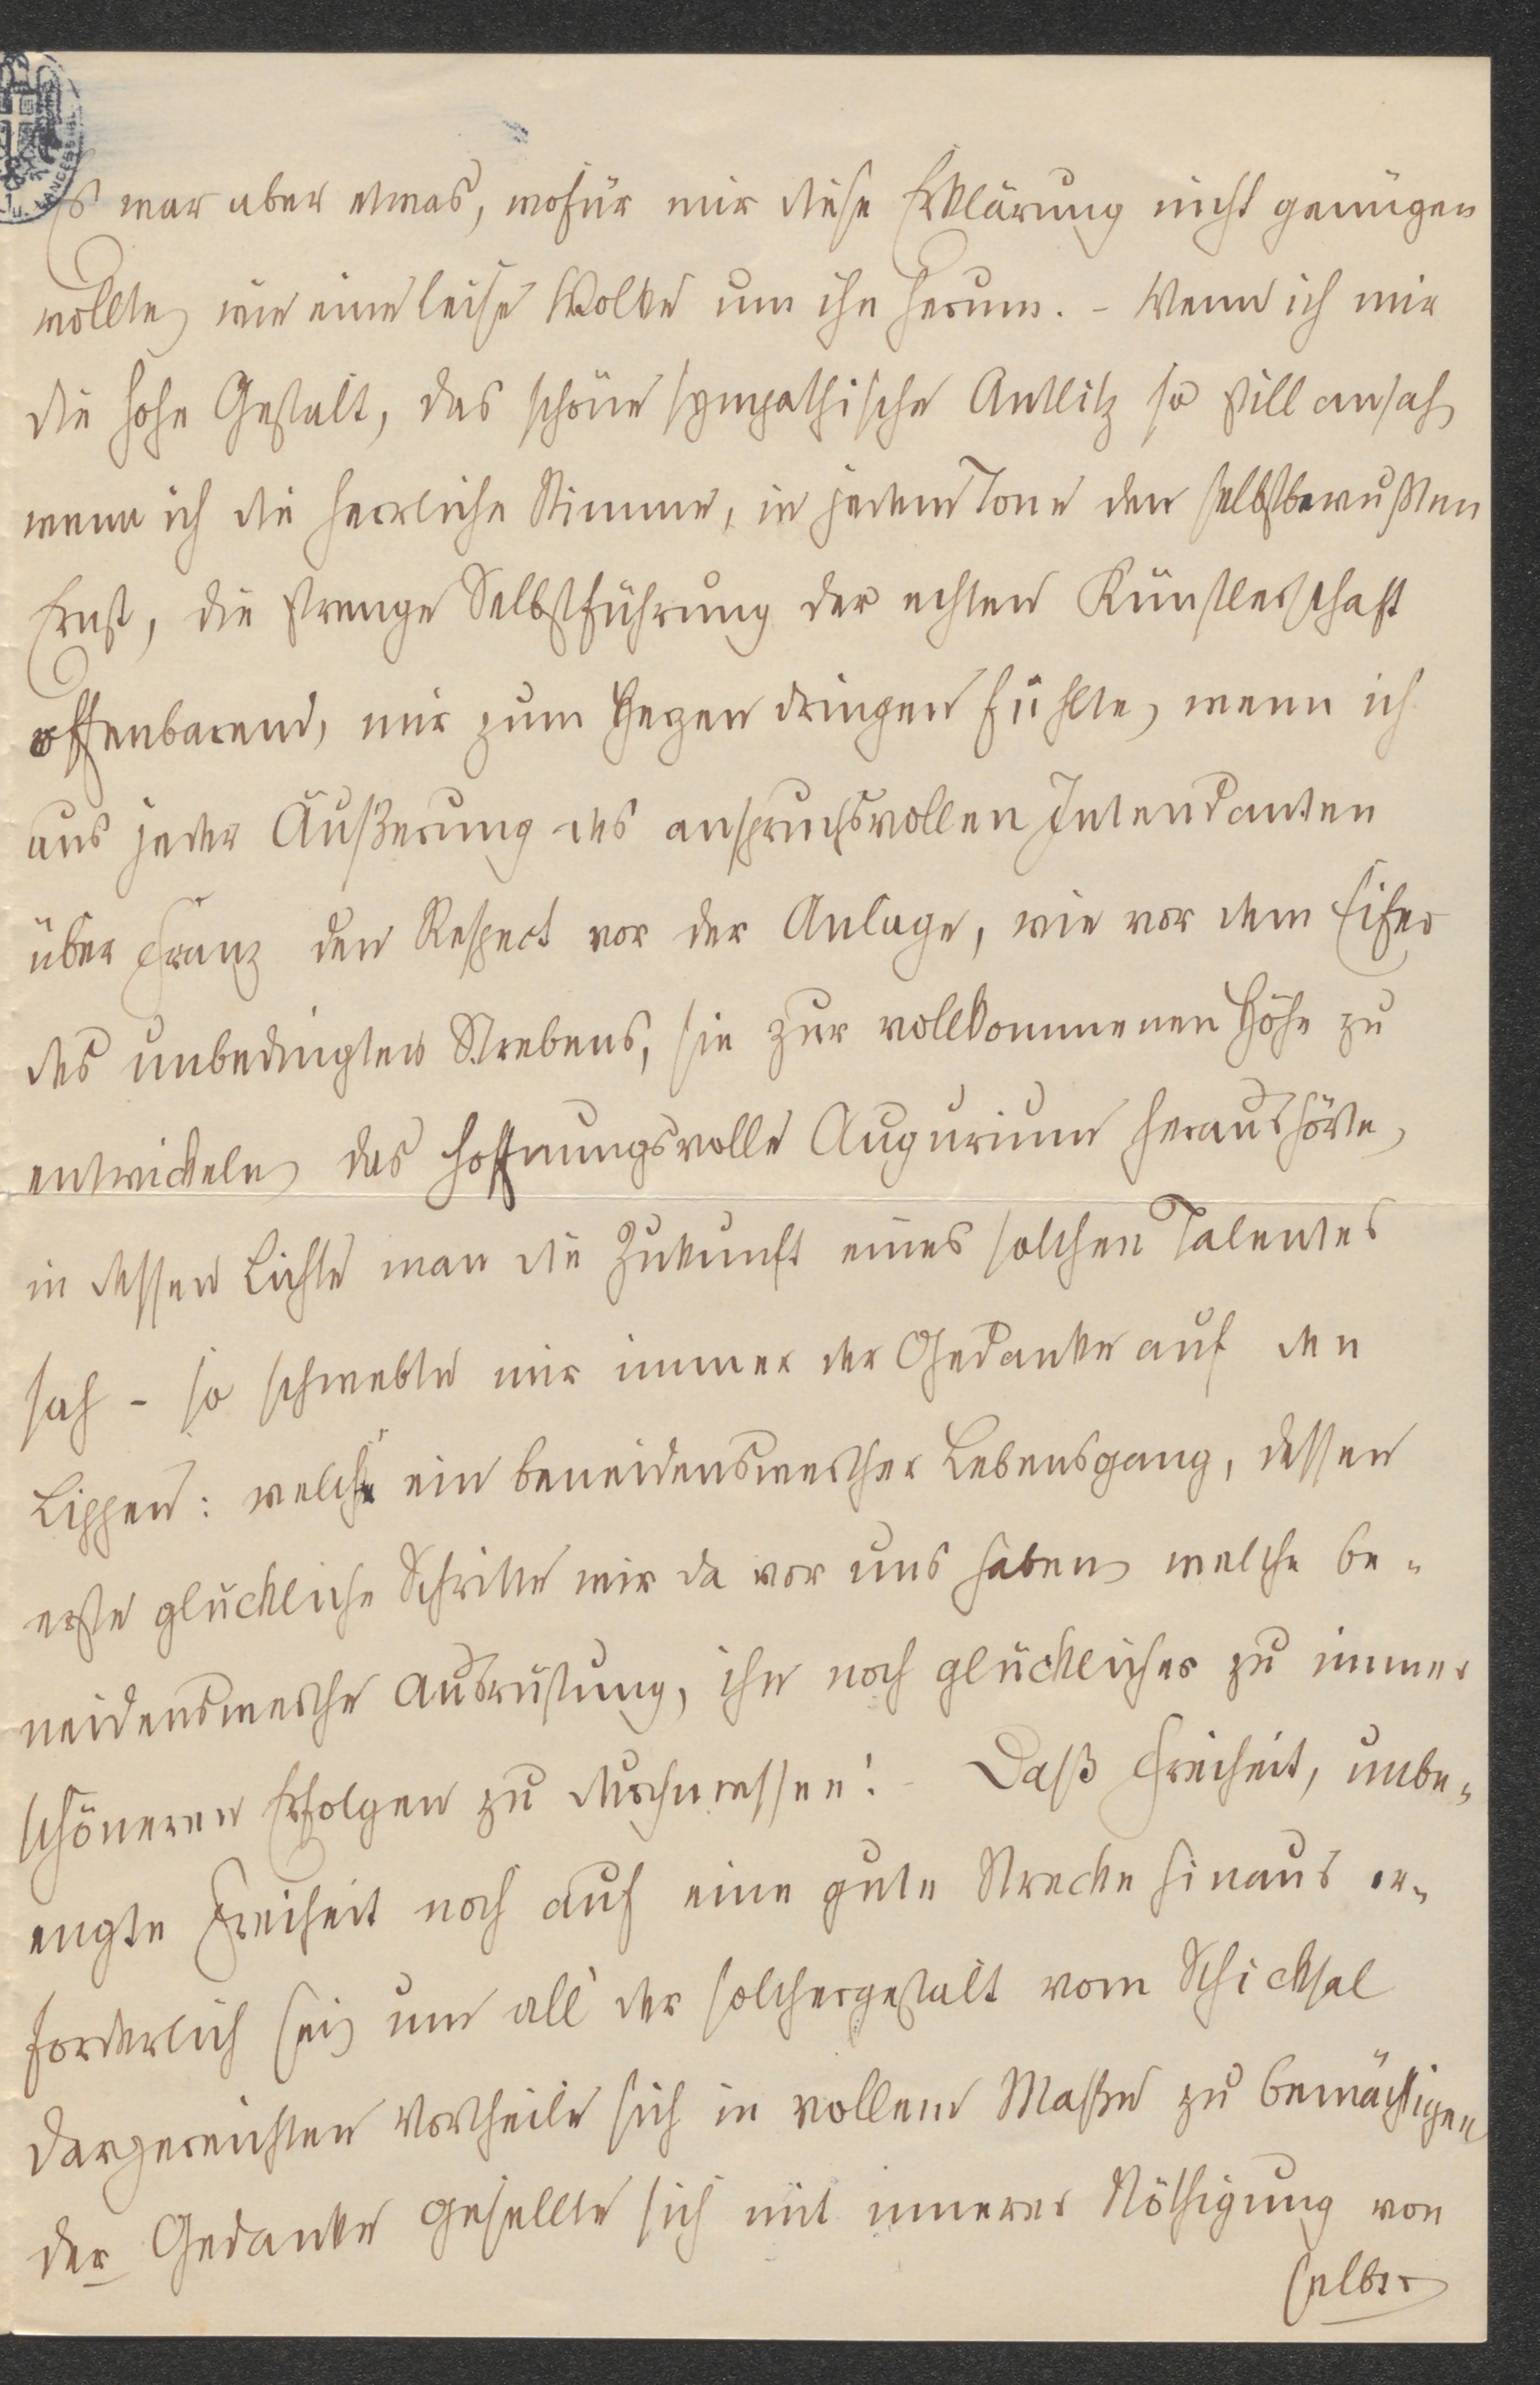 Es war aber etwas, wofür mir diese Erklärung nicht genügen
wollte, wie eine leise Wolke um ihn herum. - Wenn ich mir
die hohe Gestalt, das schöne sympathische Antlitz so still ansah,
wenn ich die herrliche Stimme, in jedem Tone den selbstbewußten
Ernst, die strenge Selbstführung der echten Künstlerschaft
offenbarend, mir zum Herzen dringen fühlte, wenn ich
aus jeder Äußerung des anspruchsvollen Intendanten
über Franz den Respect vor der Anlage, wie vor dem Eifer
des unbedingten Strebens, sie zur vollkommenen Höhe zu
entwickeln, das hoffnungsvolle Augurium heraushörte,
in dessen Lichte man die Zukunft eines solchen Talentes
sah - so schwebte mir immer der Gedanke auf den
Lippen: welch' ein beneidenswerther Lebensgang, dessen
erste glückliche Schritte wir da vor uns haben, welche be-
neidenswerthe Ausrüstung, ihn noch glücklicher zu immer
schöneren Erfolgen zu durchmessen! - Daß Freiheit, unbe-
engte Freiheit noch auf eine gute Strecke hinaus er-
forderlich sei, um all' der solchergestalt vom Schicksal
dargereichten Vortheile sich in vollem Maße zu bemächtigen,
der Gedanke gesellte sich mit innerer Nöthigung von
selber